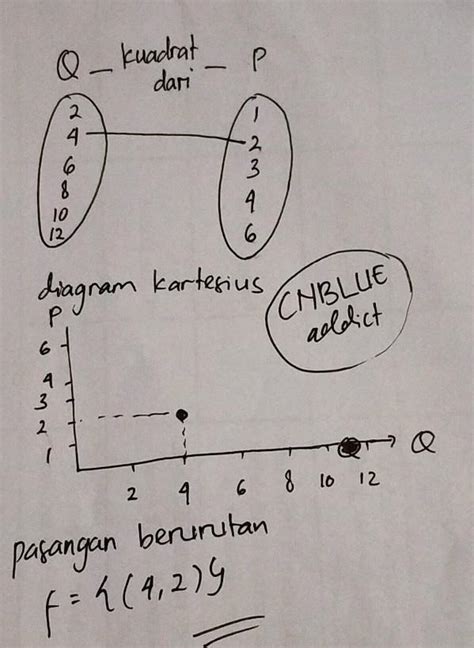 Q _ kuadrat dari _ P
2 1
4 2
6 3
8 4
10 6
12
diagram kartesius
CNBLUE
addict
P
6
4
3
2
1
2 4 6 8 10 12 Q
pasangan berurutan
f = {(4,2)}